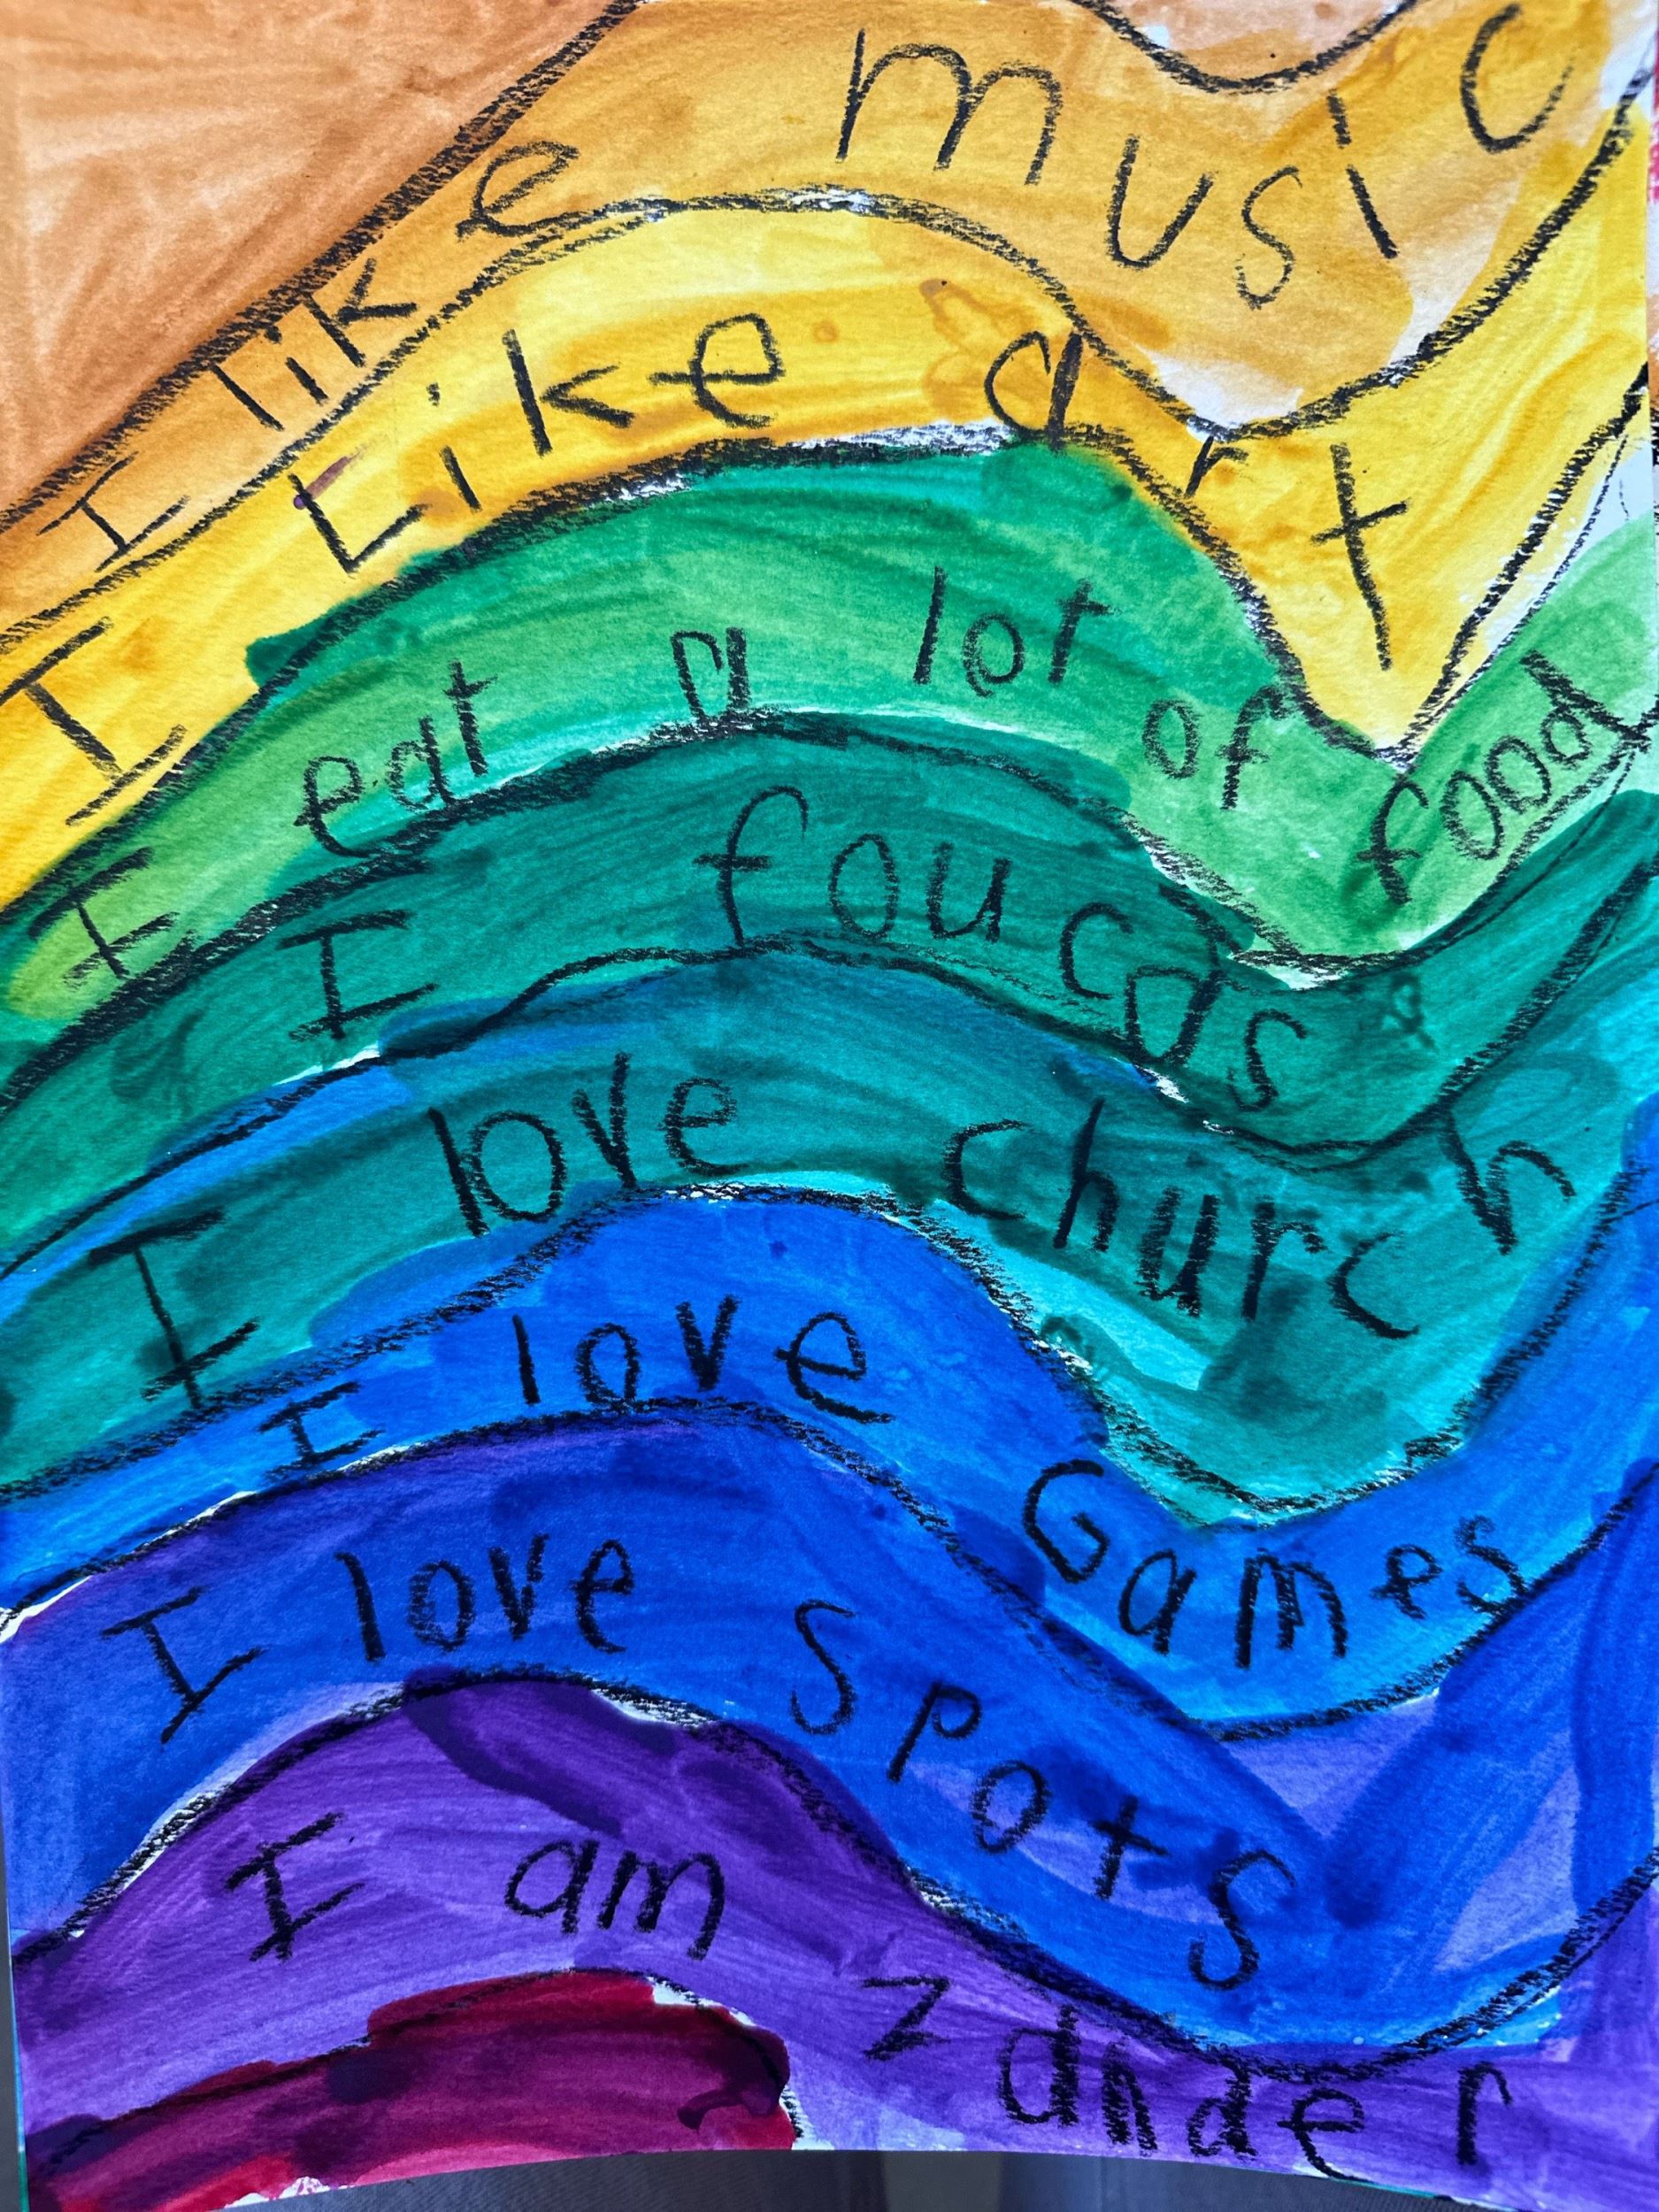 I like music
I Like art
I eat a lot of food
I foucas
I love church
I love Games
I love Spots
I am zander